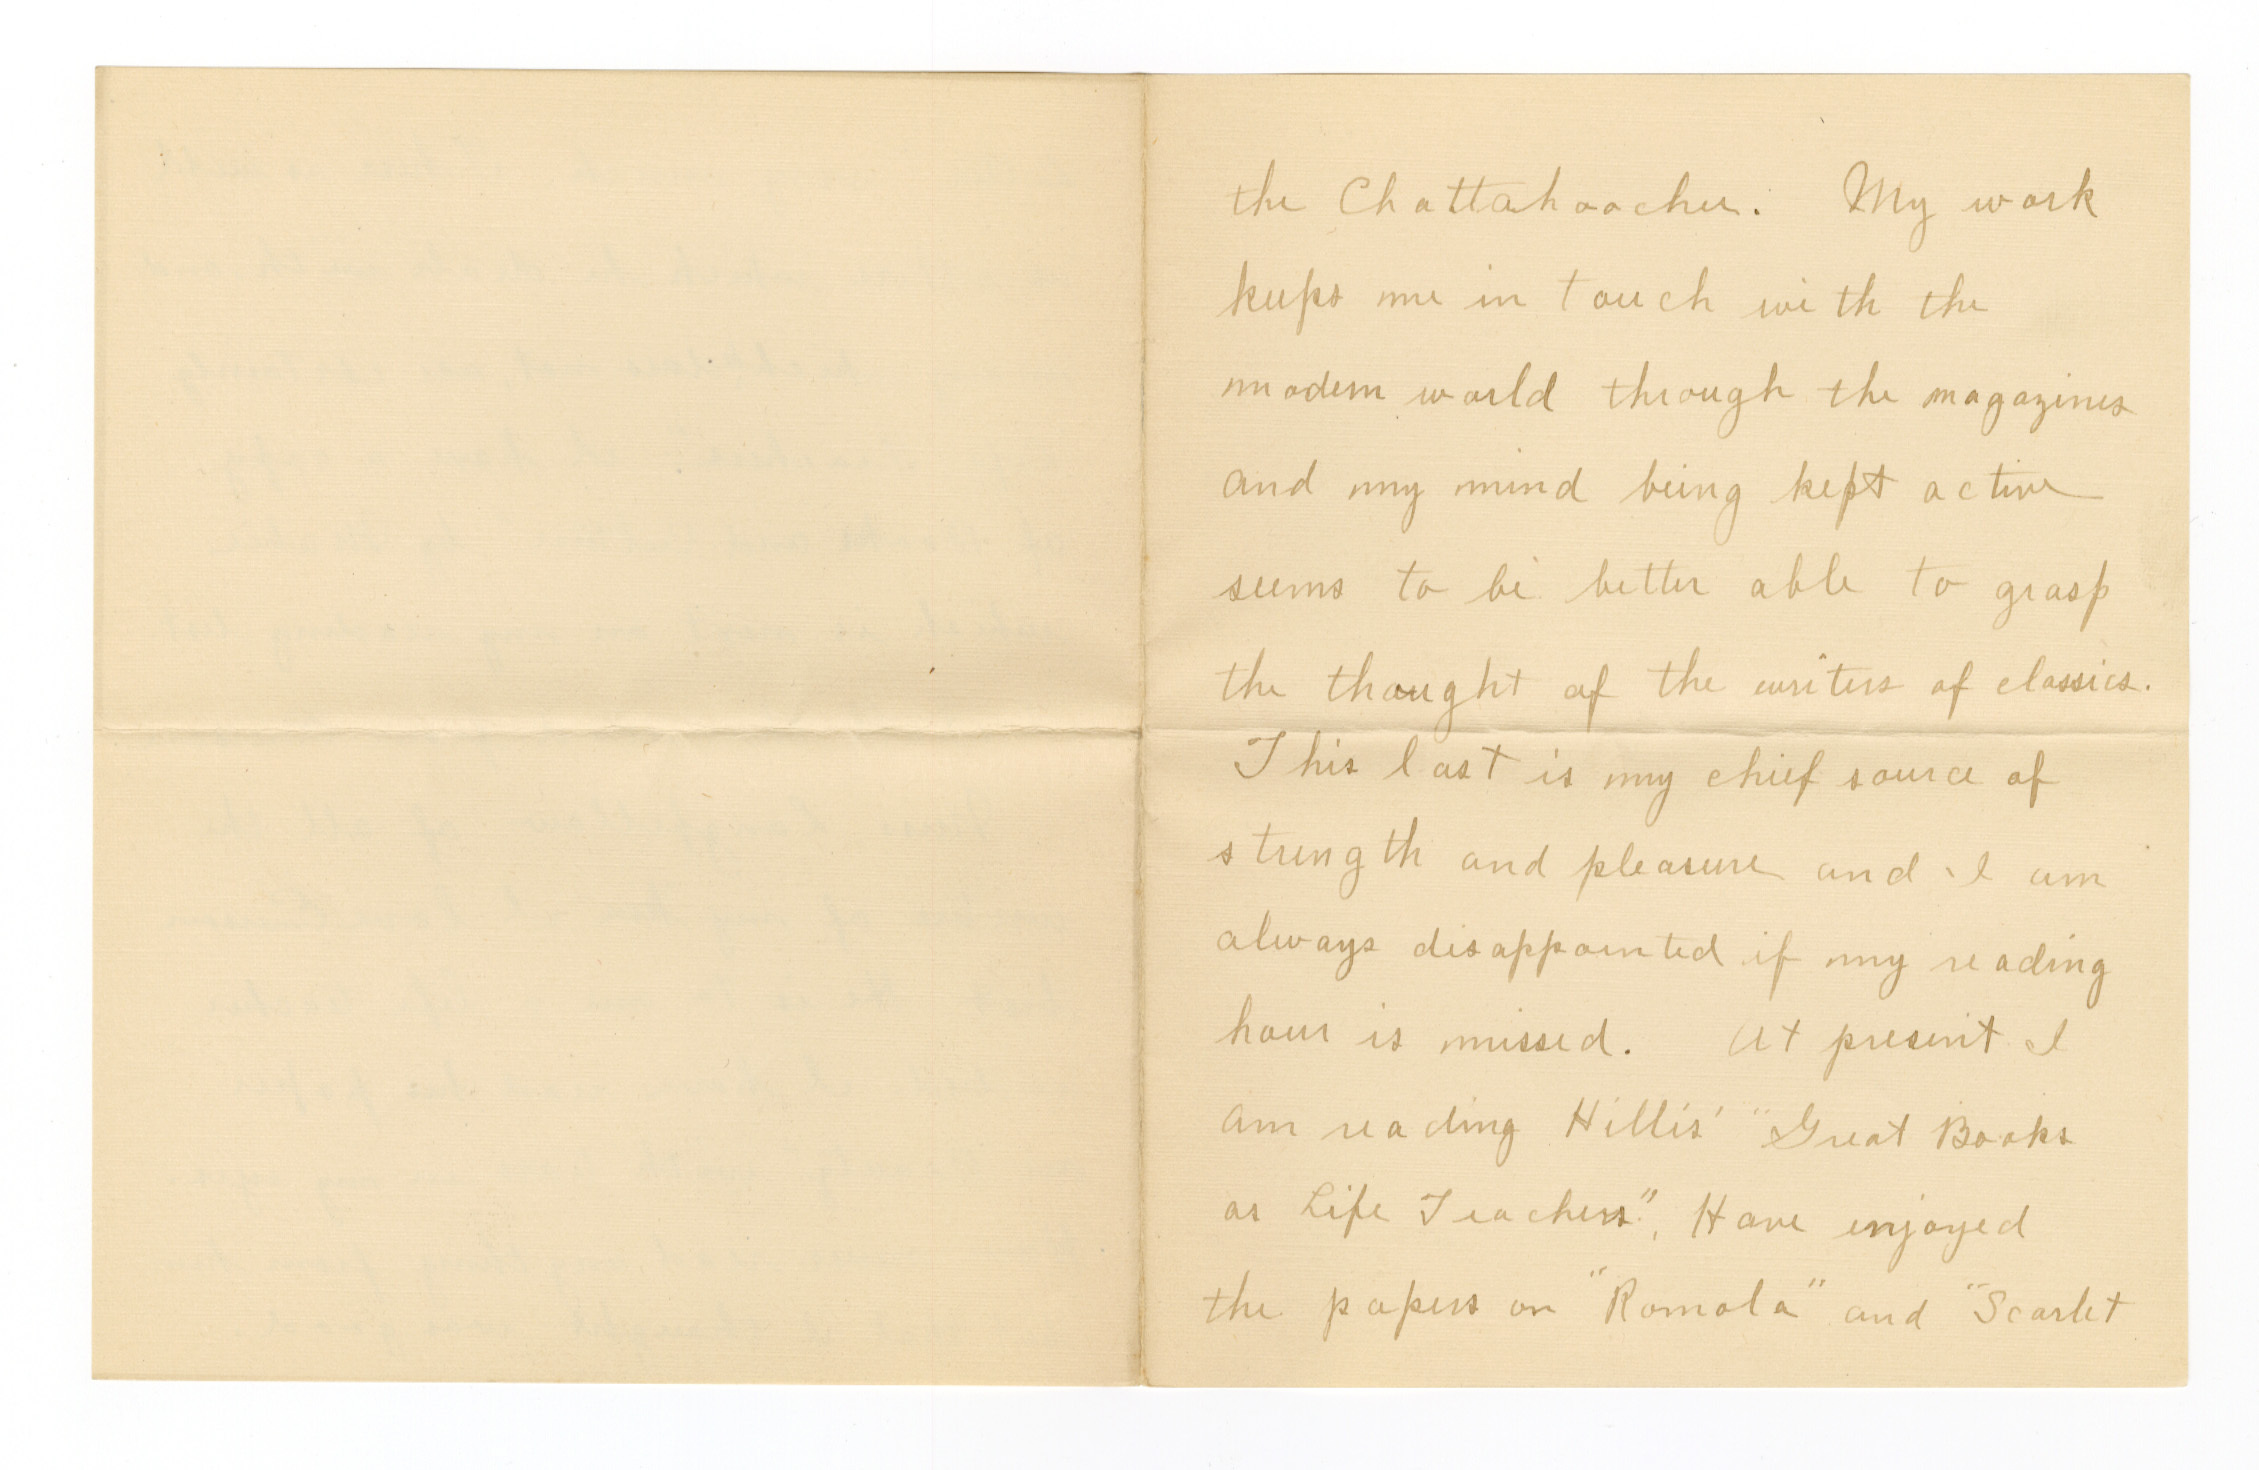 the Chattahoochee. My work
keeps me in touch with the
modern world through the magazines
and my mind being kept active
seems to be better able to grasp
the thought of the writers of classics.
This last is my chief source of
strength and pleasure and I am
always disappointed if my reading
hour is missed. At present I
am reading Hillis' "Great Books
as Life Teachers". Have enjoyed
the papers on "Romola" and "Scarlet